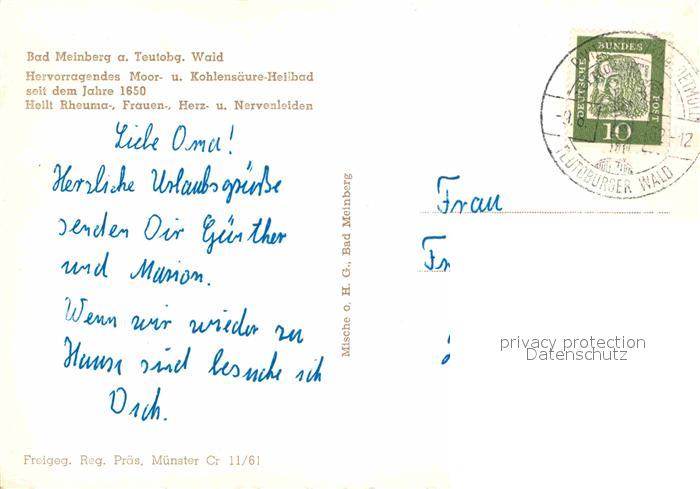 Bad Meinberg a. Teutobg. Wald
Hervorragendes Moor- u. Kohlensäure-Heilbad
seit dem Jahre 1650
Heilt Rheuma-, Frauen-, Herz- u. Nervenleiden
Liebe Oma!
Herzliche Urlaubsgrüße
senden Dir Günther
und Marion.
Wenn wir wieder zu
Hause sind besuche ich
Dich.
Freigeg. Reg. Präs. Münster Cr 11/61
Mische o. H. G., Bad Meinberg
DEUTSCHE BUNDES POST
10
TEUTOBURGER WALD
Frau
Fr
privacy protection
Datenschutz